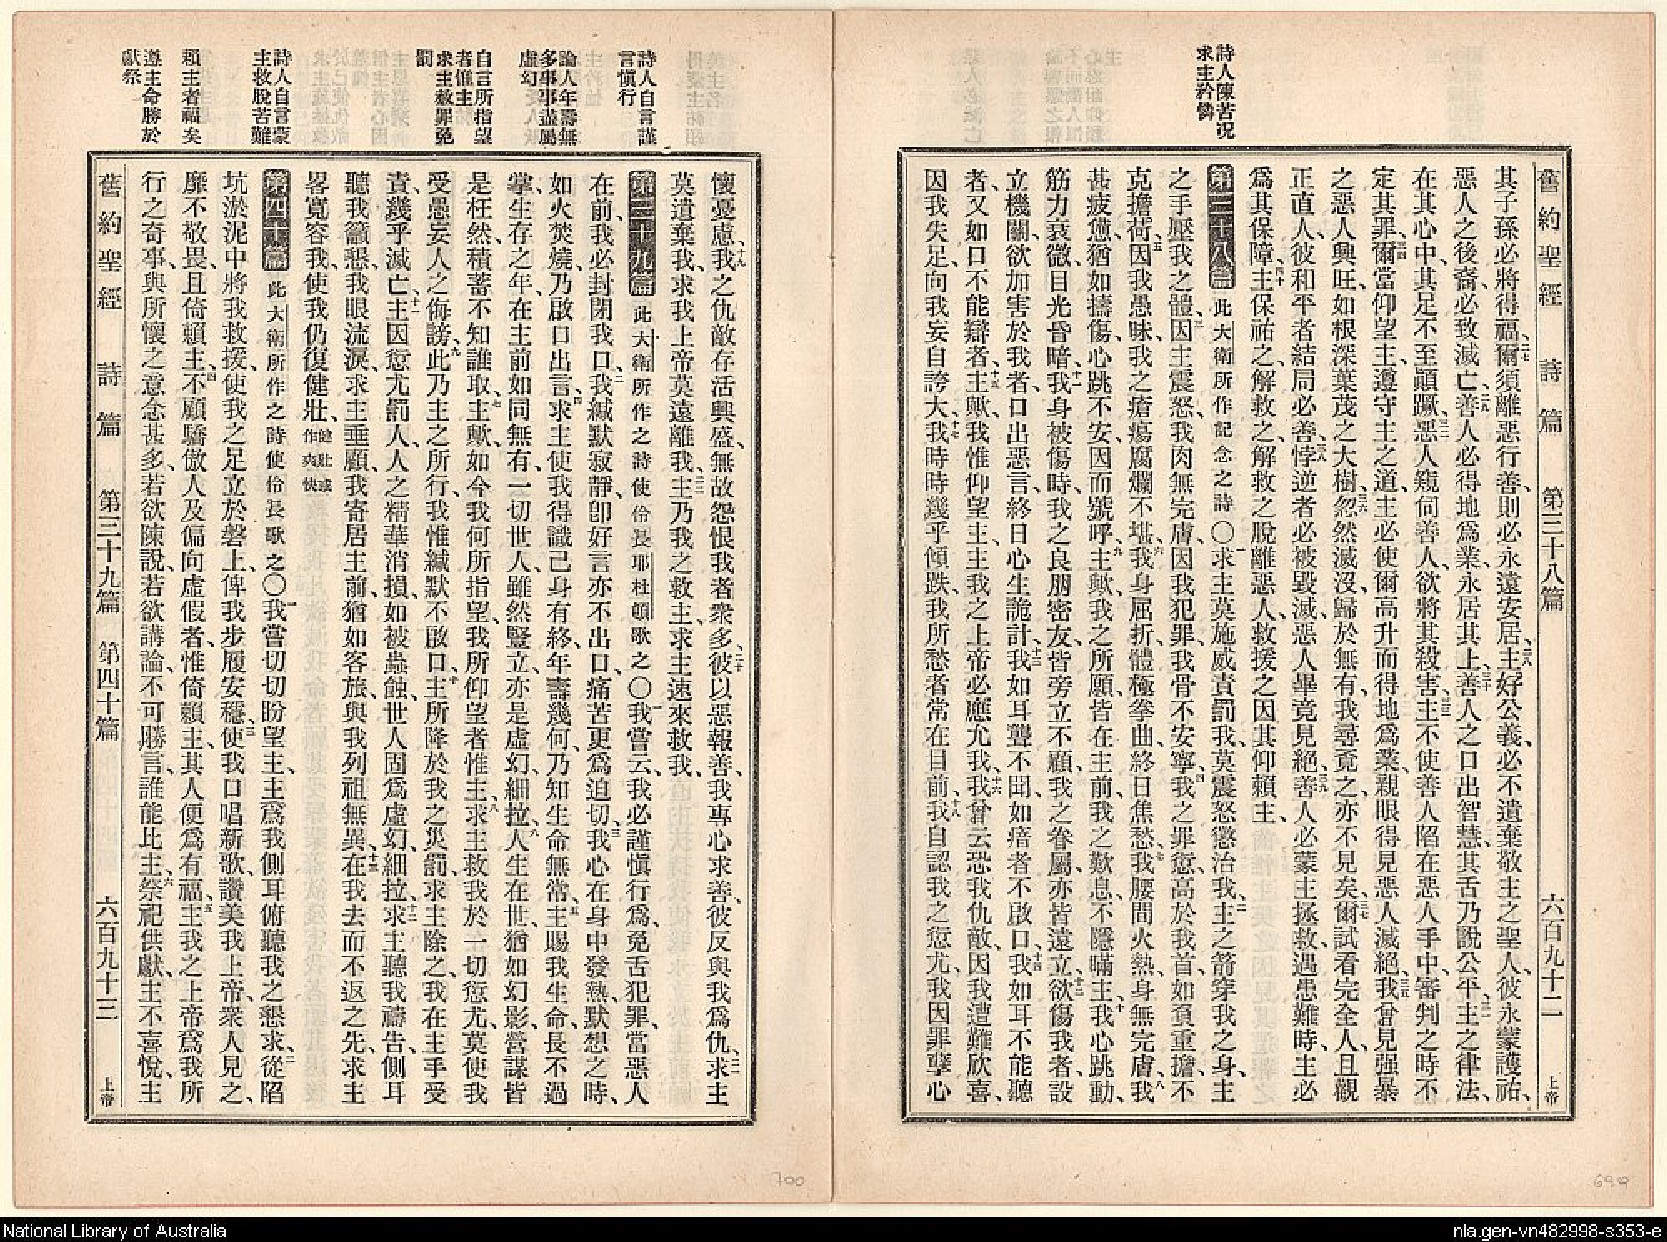 詩人陳苦況
求主矜憐
舊約聖經 詩篇 第三十八篇 六百九十二 上帝
其子孫必將得福、爾須離惡行善、則必永遠安居、主好公義、必不遺棄敬主之聖人、彼永蒙護祐、
惡人之後裔必致滅亡、善人必得地爲業、永居其上、善人之口出智慧、其舌乃說公平、主之律法、
在其心中、其足不至顚蹶、惡人窺伺善人、欲將其殺害、主不使善人陷在惡人手中、審判之時不
定其罪、爾當仰望主、遵守主之道、主必使爾高升而得地爲業、親眼得見惡人滅絕、我曾見强暴
之惡人興旺、如根深葉茂之大樹、忽然滅沒、歸於無有、我尋覓之、亦不見矣、爾試看完全人、且觀
正直人、彼和平者結局必善、悖逆者必被毀滅、惡人畢竟見絕、善人必蒙主拯救、遇患難時、主必
爲其保障、主保祐之、解救之、解救之脫離惡人、救援之、因其仰賴主、
第三十八篇 此大衛所作記念之詩 〇求主莫施威責罰我、莫震怒懲治我、主之箭穿我之身、主
之手壓我之體、因主震怒、我肉無完膚、因我犯罪、我骨不安寧、我之罪愆高於我首、如負重擔、不
克擔荷、因我愚昧、我之瘡瘍腐爛不堪、我身屈折、體極拳曲、終日焦愁、我腰間火熱、身無完膚、我
甚疲憊、猶如擣傷、心跳不安、因而號呼、主歟、我之所願、皆在主前、我之歎息、不隱暪主、我心跳動、
筋力衰微、目光昏暗、我身被傷時、我之良朋密友、皆旁立不顧、我之眷屬、亦皆遠立、欲傷我者、設
立機關、欲加害於我者、口出惡言、終日心生詭計、我如耳聾不聞、如瘖者不啟口、我如耳不能聽
者、又如口不能辯者、主歟、我惟仰望主、主我之上帝必應允我、我曾云、恐我仇敵、因我遭難欣喜、
因我失足、向我妄自誇大、我時時幾乎傾跌、我所愁者、常在目前、我自認我之愆尤、我因罪孽心
詩人自言謹
言愼行
論人年壽無
多事事盡屬
虛幻
自言所指望
者惟主
求主赦罪免
罰
詩人自言蒙
主救脫苦難
賴主者福矣
遵主命勝於
獻祭
懷憂慮、我之仇敵存活興盛、無故怨恨我者衆多、彼以惡報善、我專心求善、彼反與我爲仇、求主
莫遺棄我、求我上帝莫遠離我、主乃我之救主、求主速來救我、
第三十九篇 此大衛所作之詩使伶長耶杜頓歌之 〇我嘗云、我必謹愼行爲、免舌犯罪、當惡人
在前、我必封閉我口、我緘默寂靜、卽好言亦不出口、痛苦更爲迫切、我心在身中發熱、默想之時、
如火焚燒、乃啟口出言、求主使我得識己身有終、年壽幾何、乃知生命無常、主賜我生命長不過
掌、生存之年、在主前如同無有、一切世人、雖然豎立、亦是虛幻、細拉、人生在世、猶如幻影、營謀皆
是枉然、積蓄不知誰取、主歟、如今我何所指望、我所仰望者惟主、求主救我於一切愆尤、莫使我
受愚妄人之侮謗、此乃主之所行、我惟緘默不啟口、主所降於我之災罰、求主除之、我在主手受
責、幾乎滅亡、主因愆尤罰人、人之精華消損、如被蟲蝕、世人固爲虛幻、細拉、求主聽我禱告、側耳
聽我籲懇、我眼流淚、求主垂顧、我寄居主前、猶如客旅、與我列祖無異、在我去而不返之先、求主
畧寬容我、使我仍復健壯、健壯或作爽快
第四十篇 此大衛所作之詩使伶長歌之 〇我嘗切切盼望主、主爲我側耳、俯聽我之懇求、從陷
坑淤泥中、將我救援、使我之足立於磐上、俾我步履安穩、使我口唱新歌、讚美我上帝、衆人見之、
靡不敬畏、且倚賴主、不顧驕傲人、及偏向虛假者、惟倚賴主、其人便爲有福、主我之上帝爲我所
行之奇事、與所懷之意念甚多、若欲陳說、若欲講論、不可勝言、誰能比主、祭祀供獻、主不喜悅、主
舊約聖經 詩篇 第三十九篇 第四十篇 六百九十三 上帝
700
699
National Library of Australia
nla.gen-vn482998-s353-e